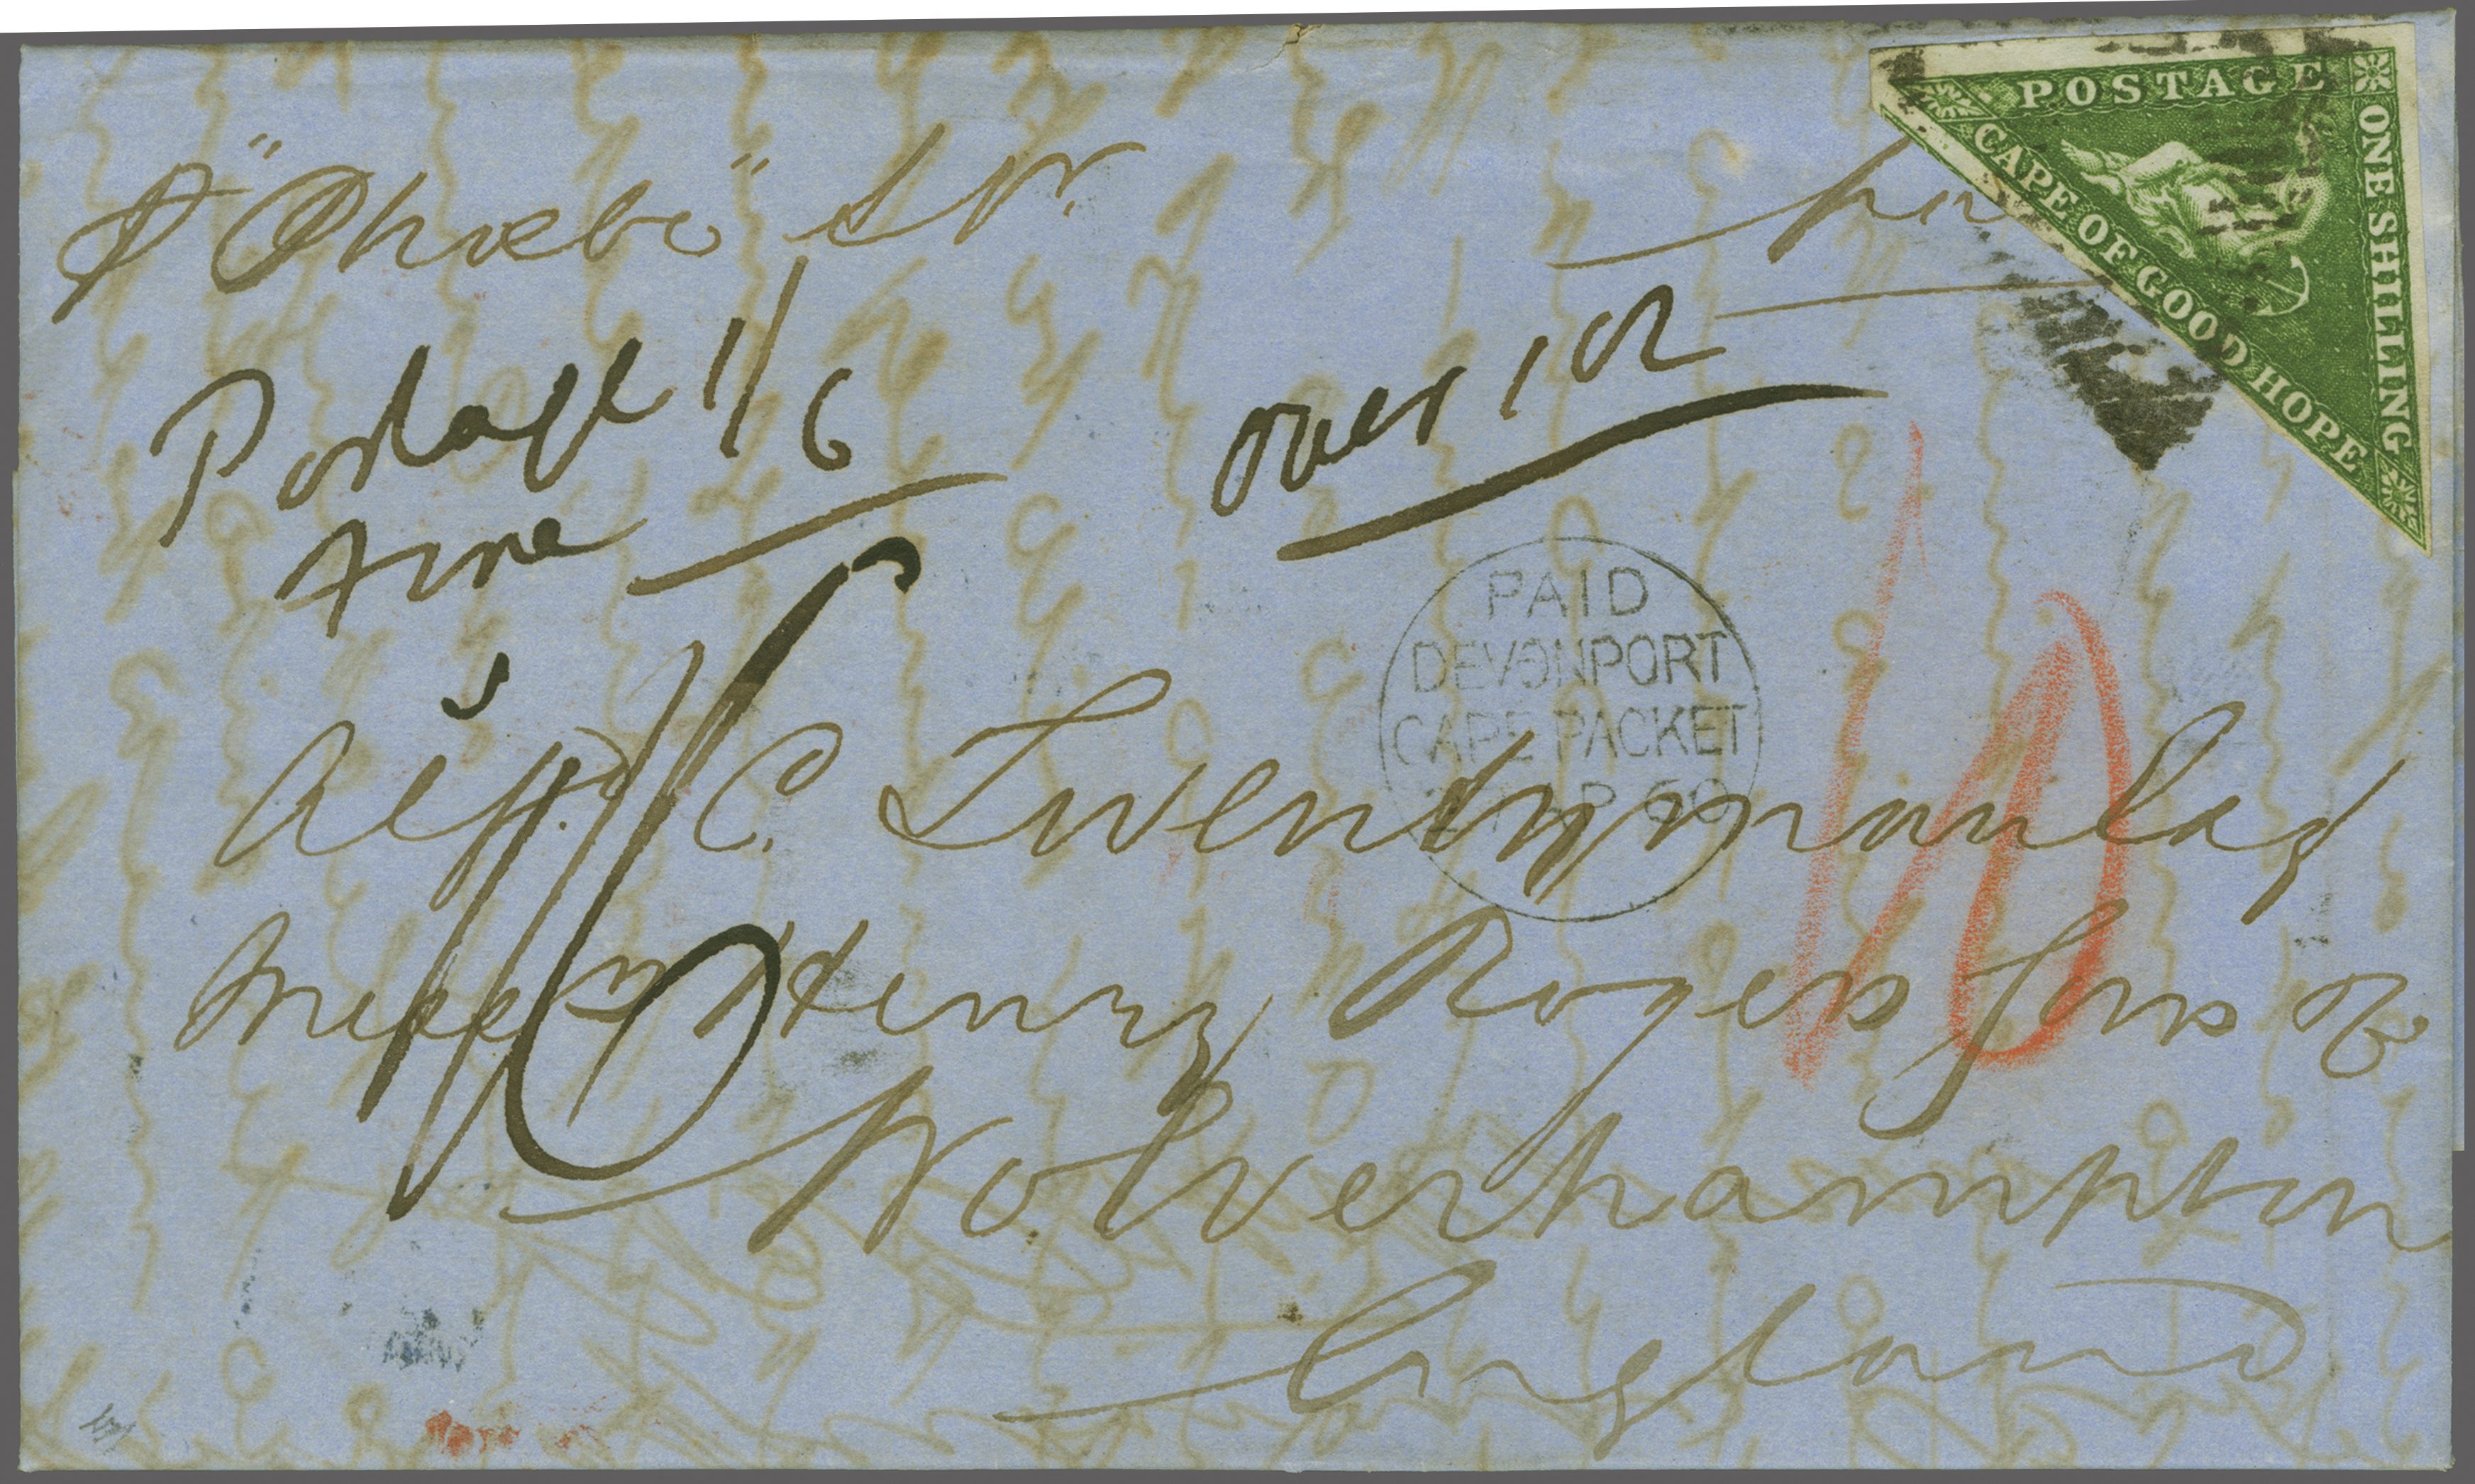 POSTAGE
ONE SHILLING
CAPE OF GOOD HOPE
"Phœbe"
Postage 1/6
over 1 oz
Fine
PAID
DEVONPORT
CAPE PACKET
AP 60
1/6
10
C. Twentyman Esq
Messrs Henry Rogers Sons &
Wolverhampton
England